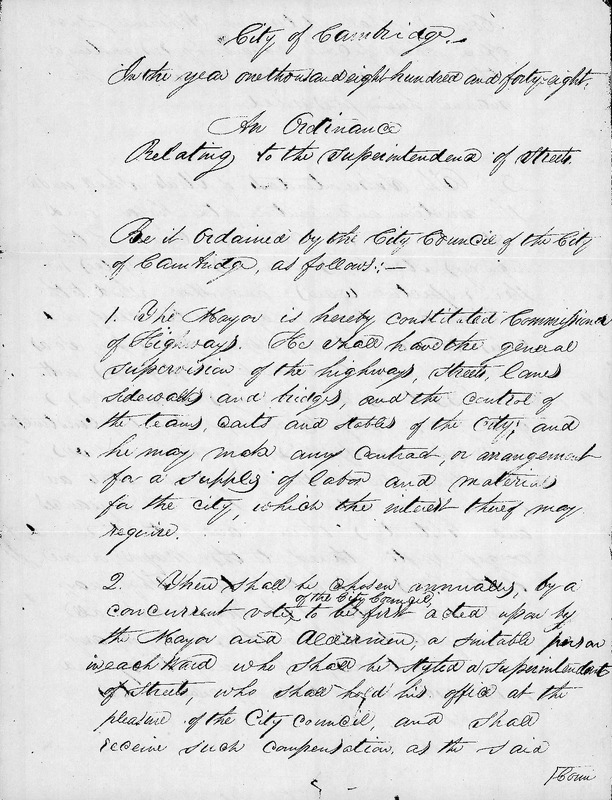 City of Cambridge.
In the year one thousand eight hundred and forty-eight.
An Ordinance
Relating to the Superintendend of Streets.
Be it Ordained by the City Council of the City
of Cambridge, as follows:—
1. The Mayor is hereby constituted Commissioner
of Highways. He shall have the general
supervision of the highways, streets, lanes
sidewalks and bridges, and the control of
the teams, carts and stables of the city; and
he may make any contract, or arrangement
for a supply of labor and materials
for the city, which the interest thereof may
require.
2. There shall be chosen annually, by a
of the City Council,
concurrent vote, to be first acted upon by
the Mayor and Aldermen, a suitable person
in each Ward who shall be styled a Superintendent
of Streets, who shall hold his office at the
pleasure of the City Council, and shall
receive such compensation, as the said